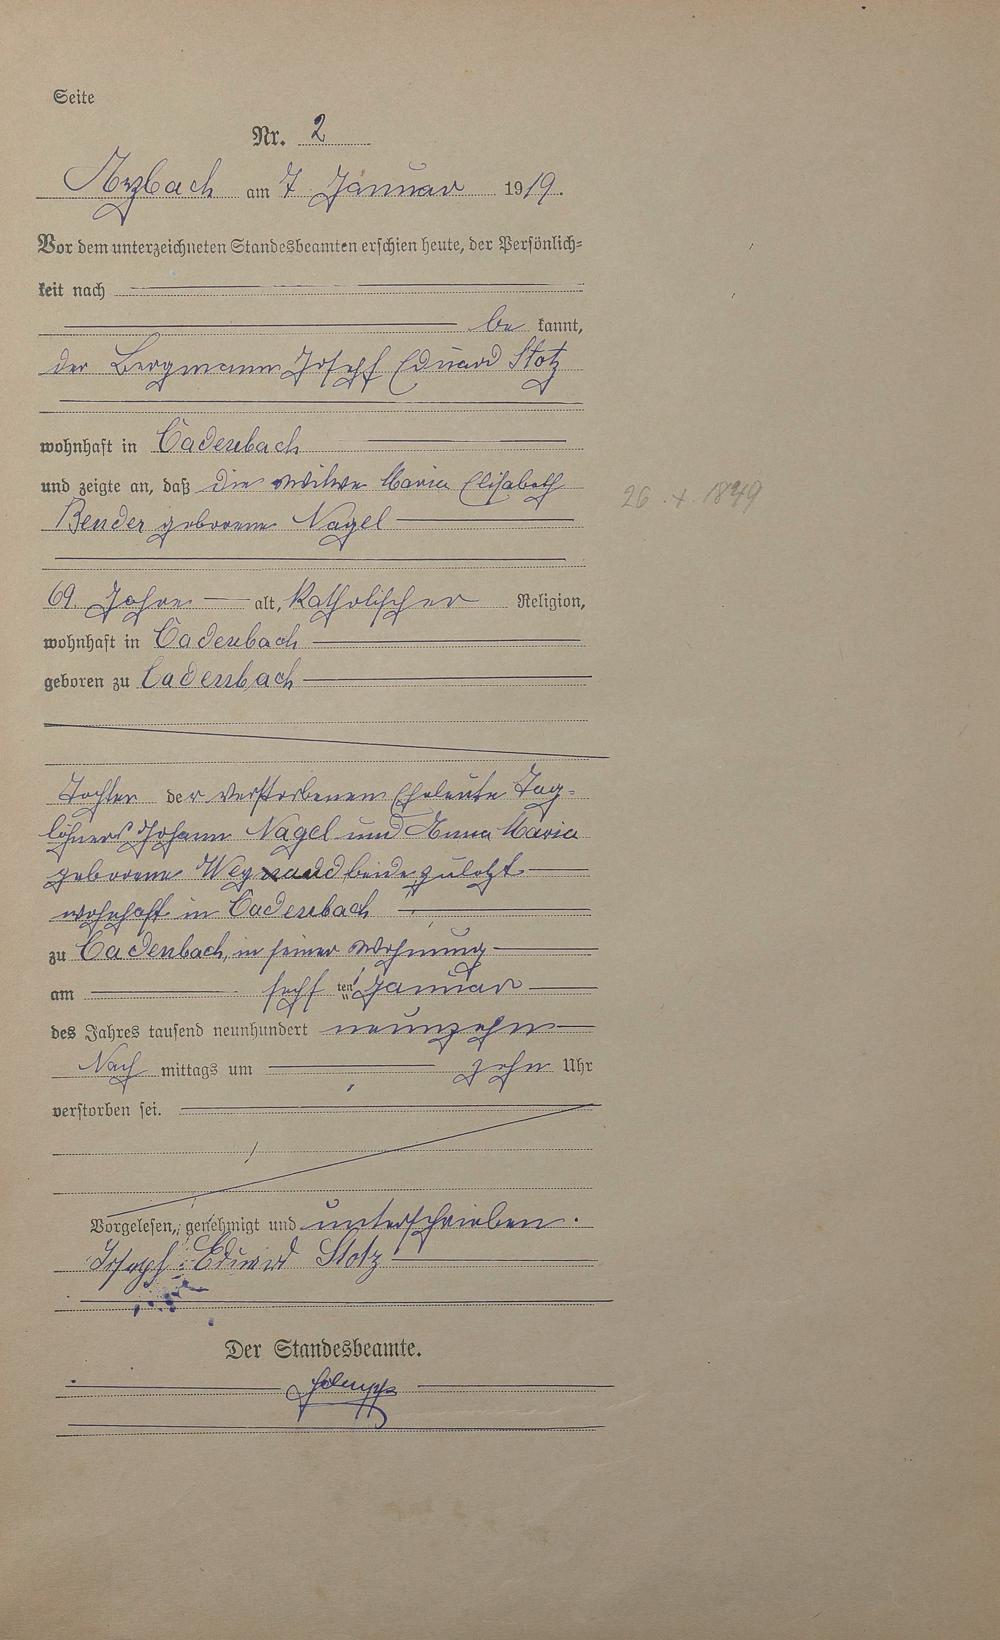 Seite
Nr. 2
Arzbach am 7 Januar 1919.
Vor dem unterzeichneten Standesbeamten erschien heute, der Persönlich=
keit nach
be kannt,
der Bergmann Joseph Eduard Stotz
wohnhaft in Cadenbach
und zeigte an, daß die Witwe Maria Elisabeth
Bender geborene Nagel
26. X. 1849
69. Jahre alt, katholischer Religion,
wohnhaft in Cadenbach
geboren zu Cadenbach
Tochter der verstorbenen Eheleute Tag=
löhners Johann Nagel und Anna Maria
geborene beide zuletzt
wohnhaft in Cadenbach
zu Cadenbach, in seiner Wohnung
am sechsten Januar
des Jahres tausend neunhundert neunzehn
Nach mittags um zehn Uhr
verstorben sei.
Vorgelesen, genehmigt und unterschrieben.
Joseph Eduard Stotz
Der Standesbeamte.